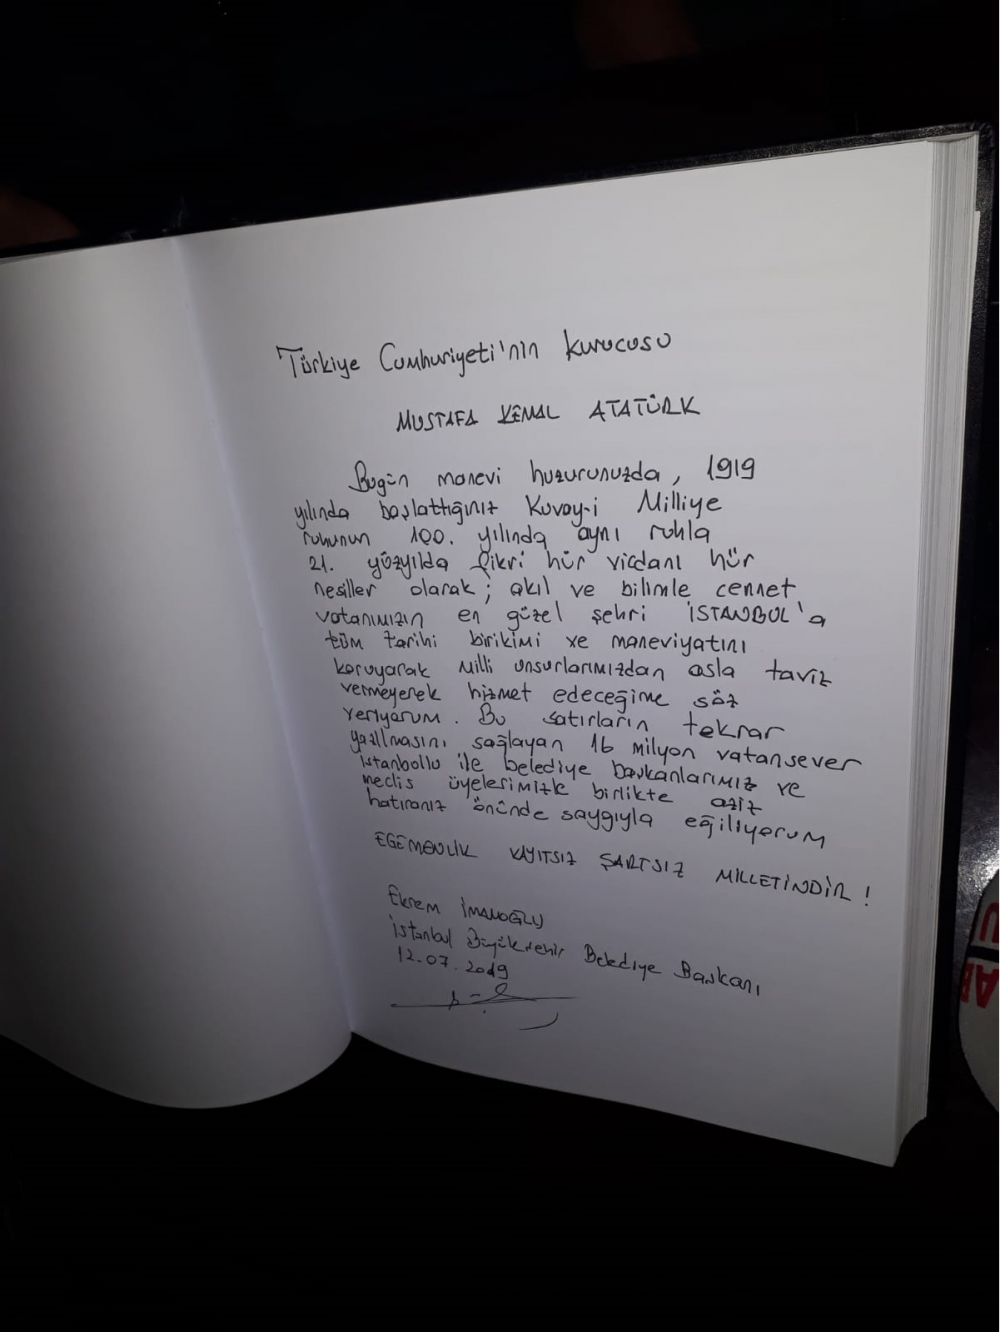 Türkiye Cumhuriyeti'nin kurucusu
MUSTAFA KEMAL ATATÜRK
Bugün manevi huzurunuzda, 1919
yılında başlattığınız Kuvay-i Milliye
ruhunun 100. yılında aynı ruhla
21. yüzyılda fikri hür vicdanı hür
nesiller olarak; akıl ve bilimle cennet
vatanımızın en güzel şehri İSTANBUL'a
tüm tarihi birikimi ve maneviyatını
koruyarak milli unsurlarımızdan asla taviz
vermeyerek hizmet edeceğime söz
veriyorum. Bu satırların tekrar
yazılmasını sağlayan 16 milyon vatansever
İstanbullu ile belediye başkanlarımız ve
meclis üyelerimizle birlikte aziz
hatıranız önünde saygıyla eğiliyorum
EGEMENLİK KAYITSIZ ŞARTSIZ MİLLETİNDİR!
Ekrem İMAMOĞLU
İstanbul Büyükşehir Belediye Başkanı
12.07.2019